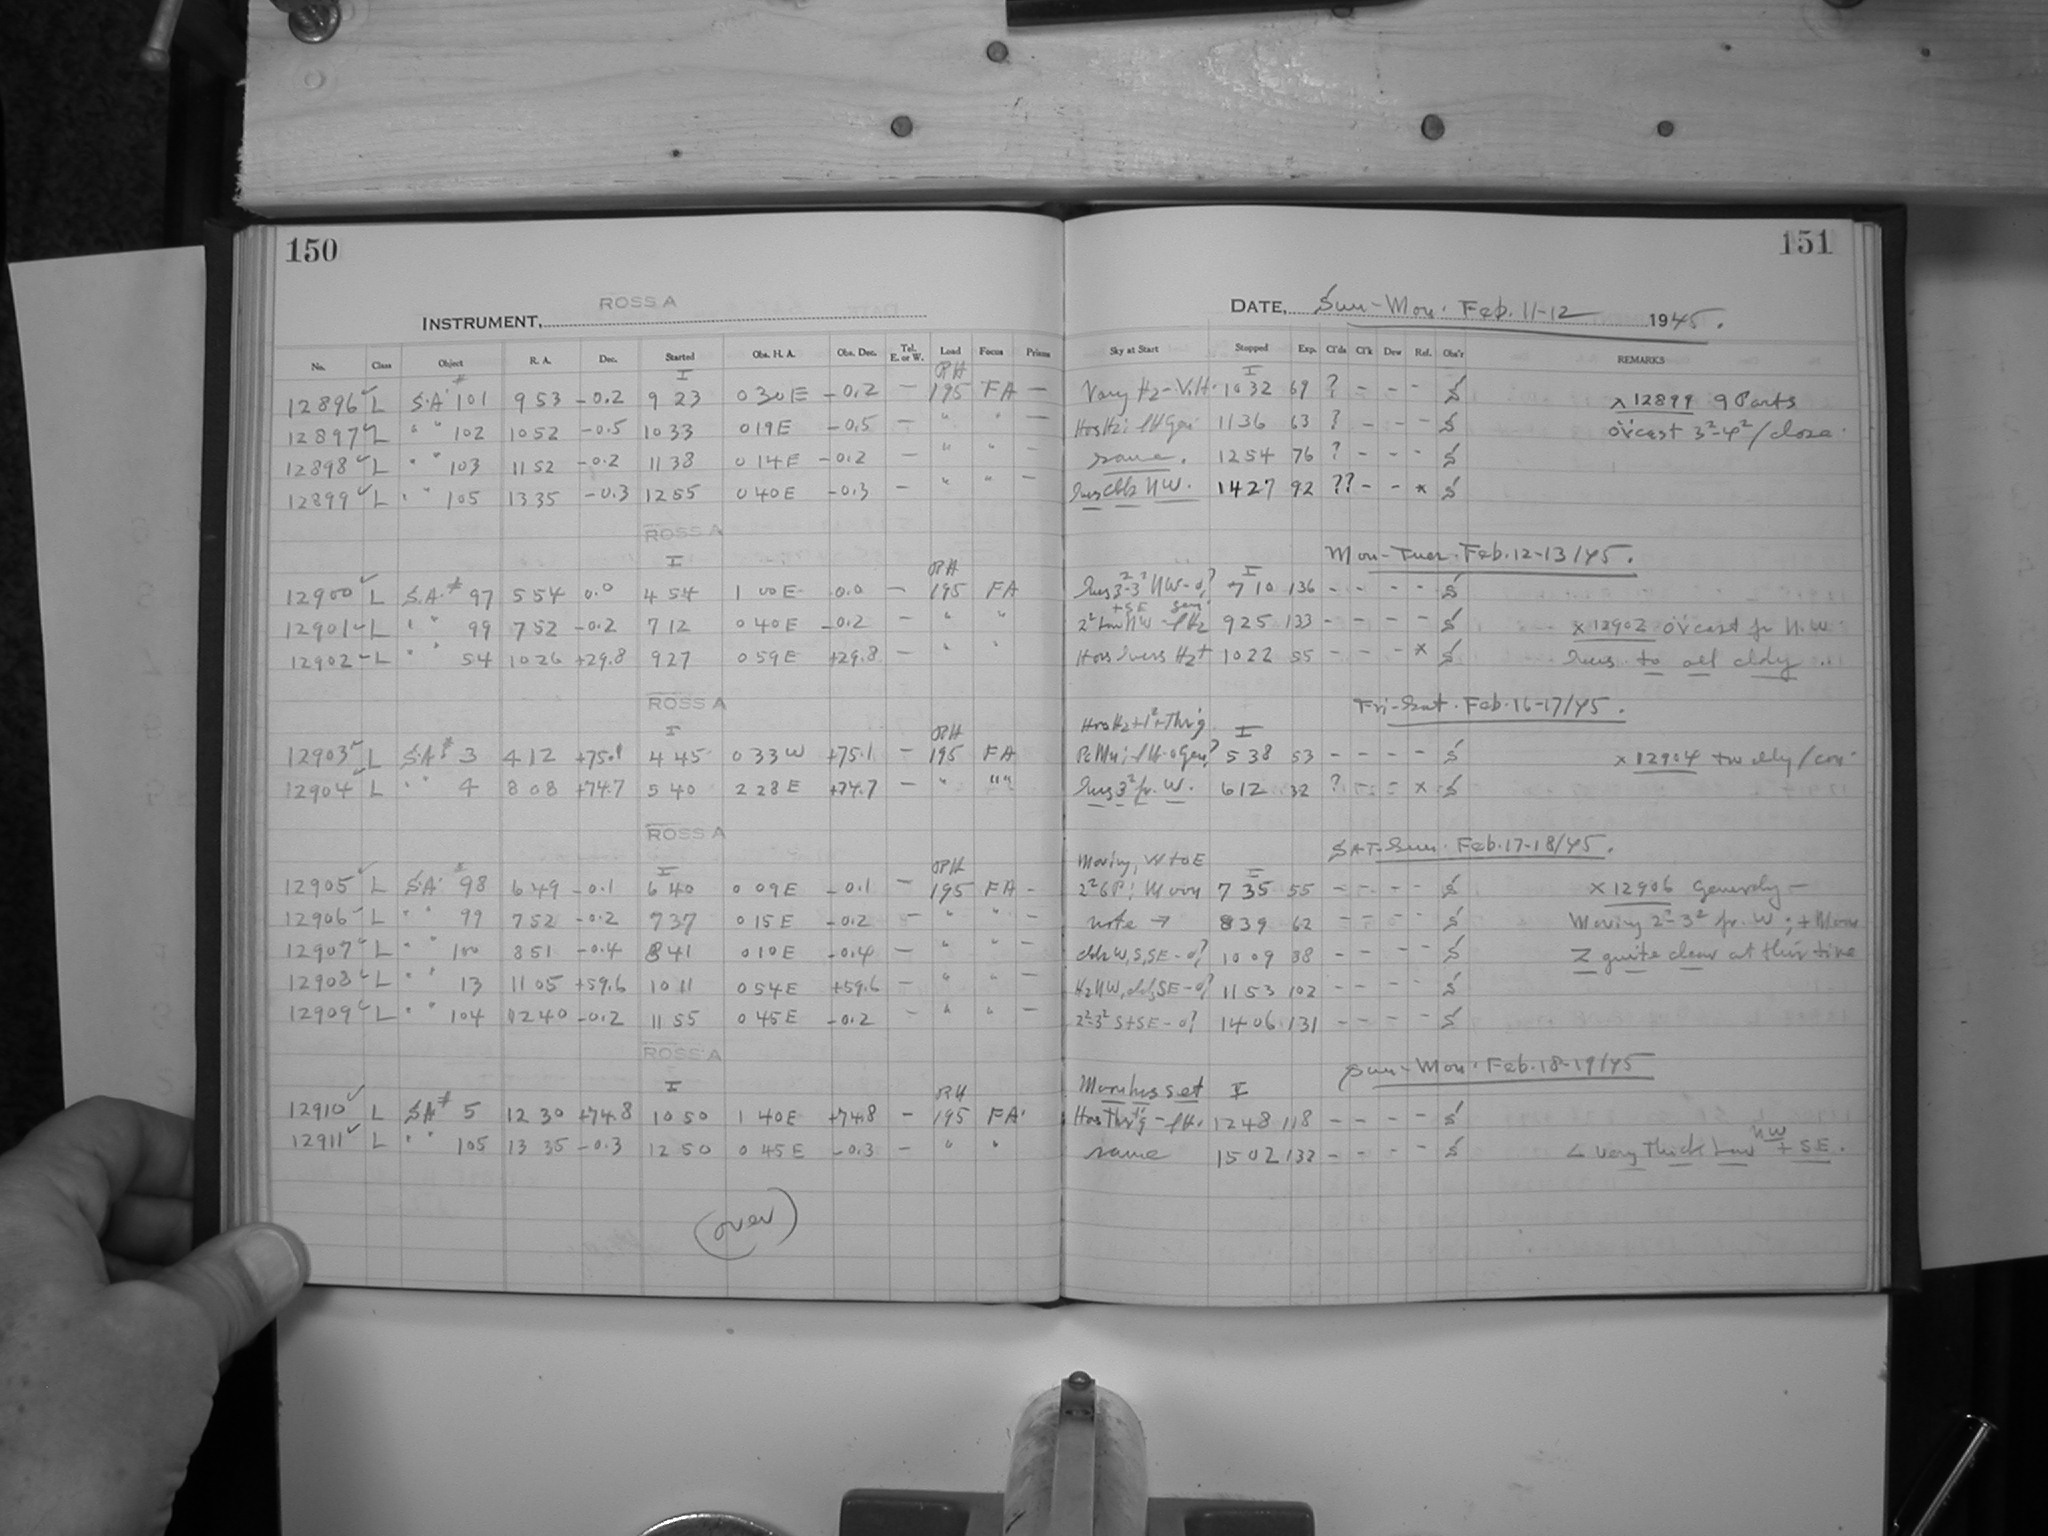 150
151
INSTRUMENT, ROSS A
DATE, Sun-Mon. Feb. 11-12 1945.
No. Class Object R. A. Dec. Started Obs. H. A. Obs. Dec. Tel. E. or W. Load Focus Prisms Sky at Start Stopped Exp. Cl'ds Cl'k Dew Ref. Obs'r REMARKS
I I
12896 L S.A. # 101 9 53 -0.2 9 23 0 30 E -0.2 — 195 FA — Vary H2 - 10 32 69 ? - - - S x 12899 9 Parts
12897 L " " 102 10 52 -0.5 10 33 0 19 E -0.5 — " " — 11 36 63 ? - - - S ovcast 3²-4² /close
12898 L " " 103 11 52 -0.2 11 38 0 14 E -0.2 — " " — same. 12 54 76 ? - - - S
12899 L " " 105 13 35 -0.3 12 55 0 40 E -0.3 — " " — NW. 14 27 92 ?? - - x S
ROSS A
Mon-Tues. Feb. 12-13/45.
I I
12900 L S.A. # 97 5 54 0.0 4 54 1 00 E 0.0 — 195 FA NW 7 10 136 - - - - S
12901 L " " 99 7 52 -0.2 7 12 0 40 E -0.2 — " " 2² Low NW 9 25 133 - - - - S x 12902 ovcast fr N.W.
12902 L " " 54 10 26 +29.8 9 27 0 59 E +29.8 — " " H2+ 10 22 55 - - - x S to all cldy
ROSS A
Fri-Sat. Feb. 16-17/45.
I I
12903 L S.A. # 3 4 12 +75.1 4 45 0 33 W +75.1 — 195 FA 5 38 53 - - - - S x 12904
12904 L " " 4 8 08 +74.7 5 40 2 28 E +74.7 — " " 3² fr. W. 6 12 32 ? - - x S
ROSS A
SAT-Sun. Feb. 17-18/45.
Moving, W to E
I I
12905 L S.A. # 98 6 49 -0.1 6 40 0 09 E -0.1 — 195 FA - Moon 7 35 55 - - - - S x 12906 Generally -
12906 L " " 99 7 52 -0.2 7 37 0 15 E -0.2 — " " — note → 8 39 62 - - - - S Moving 2²-3² fr. W; + Moon
12907 L " " 100 8 51 -0.4 8 41 0 10 E -0.4 — " " — W, S, SE - 10 09 88 - - - - S Z quite clear at this time
12908 L " " 13 11 05 +59.6 10 11 0 54 E +59.6 — " " — H2 NW, SE - 11 53 102 - - - - S
12909 L " " 104 12 40 -0.2 11 55 0 45 E -0.2 — " " — 2²-3² S+SE - 14 06 131 - - - - S
ROSS A
Sun-Mon. Feb. 18-19/45
Moon has set
I I
12910 L S.A. # 5 12 30 +74.8 10 50 1 40 E +74.8 — 195 FA 12 48 118 - - - - S
12911 L " " 105 13 35 -0.3 12 50 0 45 E -0.3 — " " same 15 02 132 - - - - S Very Thick Low NW + SE.
(over)